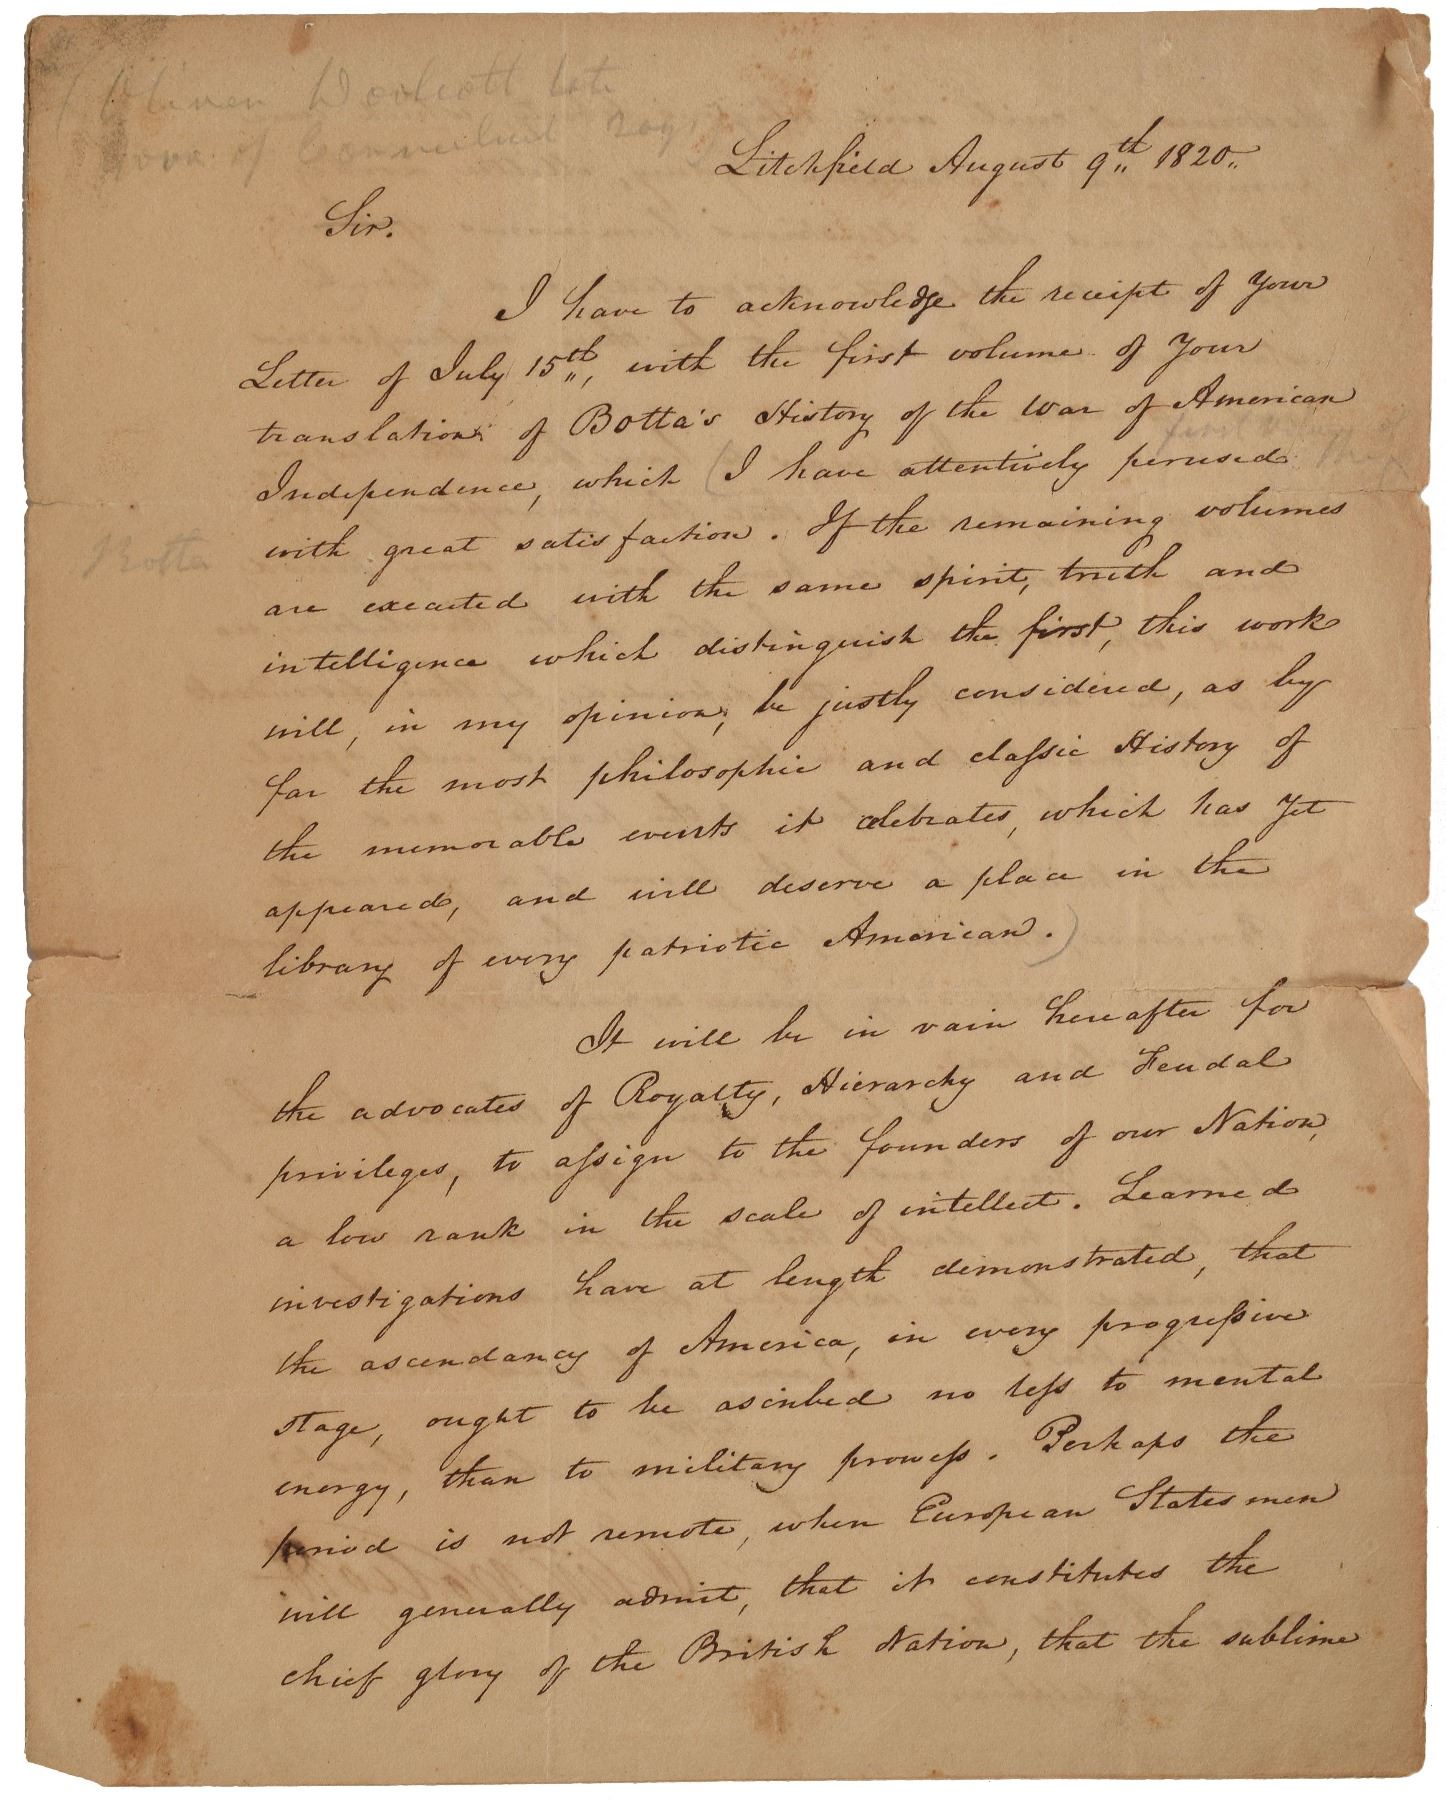 Oliver Wolcott
Gov. of Connecticut
Litchfield August 9th 1820.
Sir.
I have to acknowledge the receipt of Your
Letter of July 15th, with the first volume of Your
translation of Botta's History of the War of American
first
Independence, which (I have attentively perused
with great satisfaction. If the remaining volumes
Botta
are executed with the same spirit, truth and
intelligence which distinguish the first, this work
will, in my opinion, be justly considered, as by
far the most philosophic and classic History of
the memorable events it celebrates, which has Yet
appeared, and will deserve a place in the
library of every patriotic American.)
It will be in vain hereafter for
the advocates of Royalty, Hierarchy and Feudal
privileges, to assign to the founders of our Nation,
a low rank in the scale of intellect. Learned
investigations have at length demonstrated, that
the ascendancy of America, in every progressive
stage, ought to be ascribed no less to mental
energy, than to military prowess. Perhaps the
period is not remote, when European Statesmen
will generally admit, that it constitutes the
chief glory of the British Nation, that the sublime